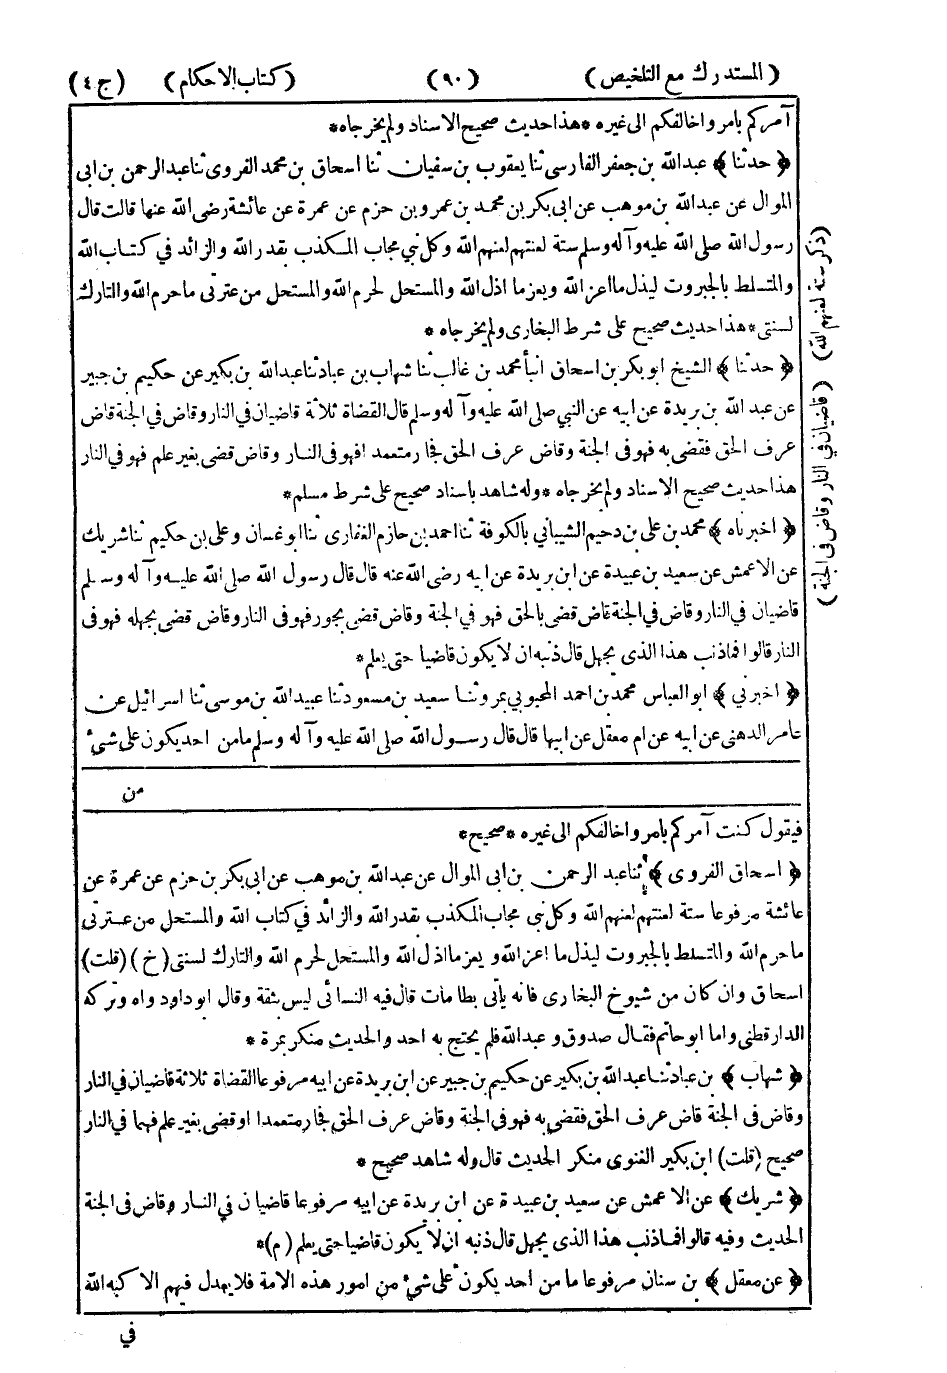 (المستدرك مع التلخيص) (٩٠) (كتاب الاحكام) (ج٤)
آمركم بامر واخالفكم الى غيره *هذا حديث صحيح الاسناد ولم يخرجاه*
﴿ حدثنا ﴾ عبدالله بن جعفر الفارسى ثنا يعقوب بن سفيان ثنا اسحاق بن محمد الفروى ثنا عبدالرحمن بن ابى
الموال عن عبدالله بن موهب عن ابى بكر بن محمد بن عمرو بن حزم عن عمرة عن عائشة رضى الله عنها قالت قال
رسول الله صلى الله عليه وآله وسلم ستة لعنتهم لعنهم الله وكل نبى مجاب المكذب بقدر الله والزائد فى كتاب الله
والمتسلط بالجبروت ليذل ما اعز الله ويعز ما اذل الله والمستحل لحرم الله والمستحل من عترتى ماحرم الله والتارك
لسنتى*هذا حديث صحيح على شرط البخارى ولم يخرجاه *
﴿ حدثنا ﴾ الشيخ ابو بكر بن اسحاق انبأ محمد بن غالب ثنا شهاب بن عباد ثنا عبدالله بن بكير عن حكيم بن جبير
عن عبد الله بن بريدة عن ابيه عن النبى صلى الله عليه وآله وسلم قال القضاة ثلاثة قاضيان فى النار وقاض فى الجنة قاض
عرف الحق فقضى به فهو فى الجنة وقاض عرف الحق فجار متعمدا فهو فى النار وقاض قضى بغير علم فهو فى النار
هذا حديث صحيح الاسناد ولم يخرجاه *وله شاهد باسناد صحيح على شرط مسلم*
﴿ اخبرناه ﴾ محمد بن على بن دحيم الشيبانى بالكوفة ثنا احمد بن حازم الغفارى ثنا ابو غسان وعلى بن حكيم ثنا شريك
عن الاعمش عن سعيد بن عبيدة عن ابن بريدة عن ابيه رضى الله عنه قال قال رسول الله صلى الله عليه وآله وسلم
قاضيان فى النار وقاض فى الجنة قاض قضى بالحق فهو فى الجنة وقاض قضى بجور فهو فى النار وقاض قضى بجهله فهو فى
النار قالوا فماذنب هذا الذى يجهل قال ذنبه ان لا يكون قاضيا حتى يعلم*
﴿ اخبرنى ﴾ ابو العباس محمد بن احمد المحبوبى بمرو ثنا سعيد بن مسعود ثنا عبيدالله بن موسى ثنا اسرائيل عن
عامر الدهنى عن ابيه عن ام معقل عن ابيها قال قال رسول الله صلى الله عليه وآله وسلم مامن احد يكون على شىء
من
فيقول كنت آمركم بامر واخالفكم الى غيره *صحيح*
﴿ اسحاق الفروى ﴾ ثنا عبد الرحمن بن ابى الموال عن عبدالله بن موهب عن ابى بكر بن حزم عن عمرة عن
عائشة مرفوعا ستة لعنتهم لعنهم الله وكل نبى مجاب المكذب بقدر الله والزائد فى كتاب الله والمستحل من عترتى
ماحرم الله والمتسلط بالجبروت ليذل ما اعز الله ويعز ما اذل الله والمستحل لحرم الله والتارك لسنتى (خ) (قلت)
اسحاق وان كان من شيوخ البخارى فانه يأتى بطامات قال فيه النسائى ليس بثقة وقال ابو داود واه وتركه
الدارقطنى واما ابو حاتم فقال صدوق وعبدالله فلم يحتج به احد والحديث منكر بمرة *
﴿ شهاب ﴾ بن عباد ثنا عبدالله بن بكير عن حكيم بن جبير عن ابن بريدة عن ابيه مرفوعا القضاة ثلاثة قاضيان فى النار
وقاض فى الجنة قاض عرف الحق فقضى به فهو فى الجنة وقاض عرف الحق فجار متعمدا او قضى بغير علم فهما فى النار
صحيح (قلت) ابن بكير الغنوى منكر الحديث قال وله شاهد صحيح *
﴿ شريك ﴾ عن الاعمش عن سعيد بن عبيدة عن ابن بريدة عن ابيه مرفوعا قاضيان فى النار وقاض فى الجنة
الحديث وفيه قالوا فماذنب هذا الذى يجهل قال ذنبه ان لا يكون قاضيا حتى يعلم (م)*
﴿ عن معقل ﴾ بن سنان مرفوعا ما من احد يكون على شىء من امور هذه الامة فلا يعدل فيهم الا كبه الله
فى
(ذكر ستة لعنهم الله)
(قاضيان فى النار وقاض فى الجنة)